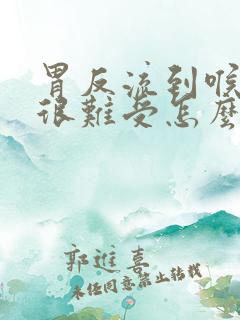 胃反流到喉
很難受怎麼
郭進喜
未经同意禁止转载